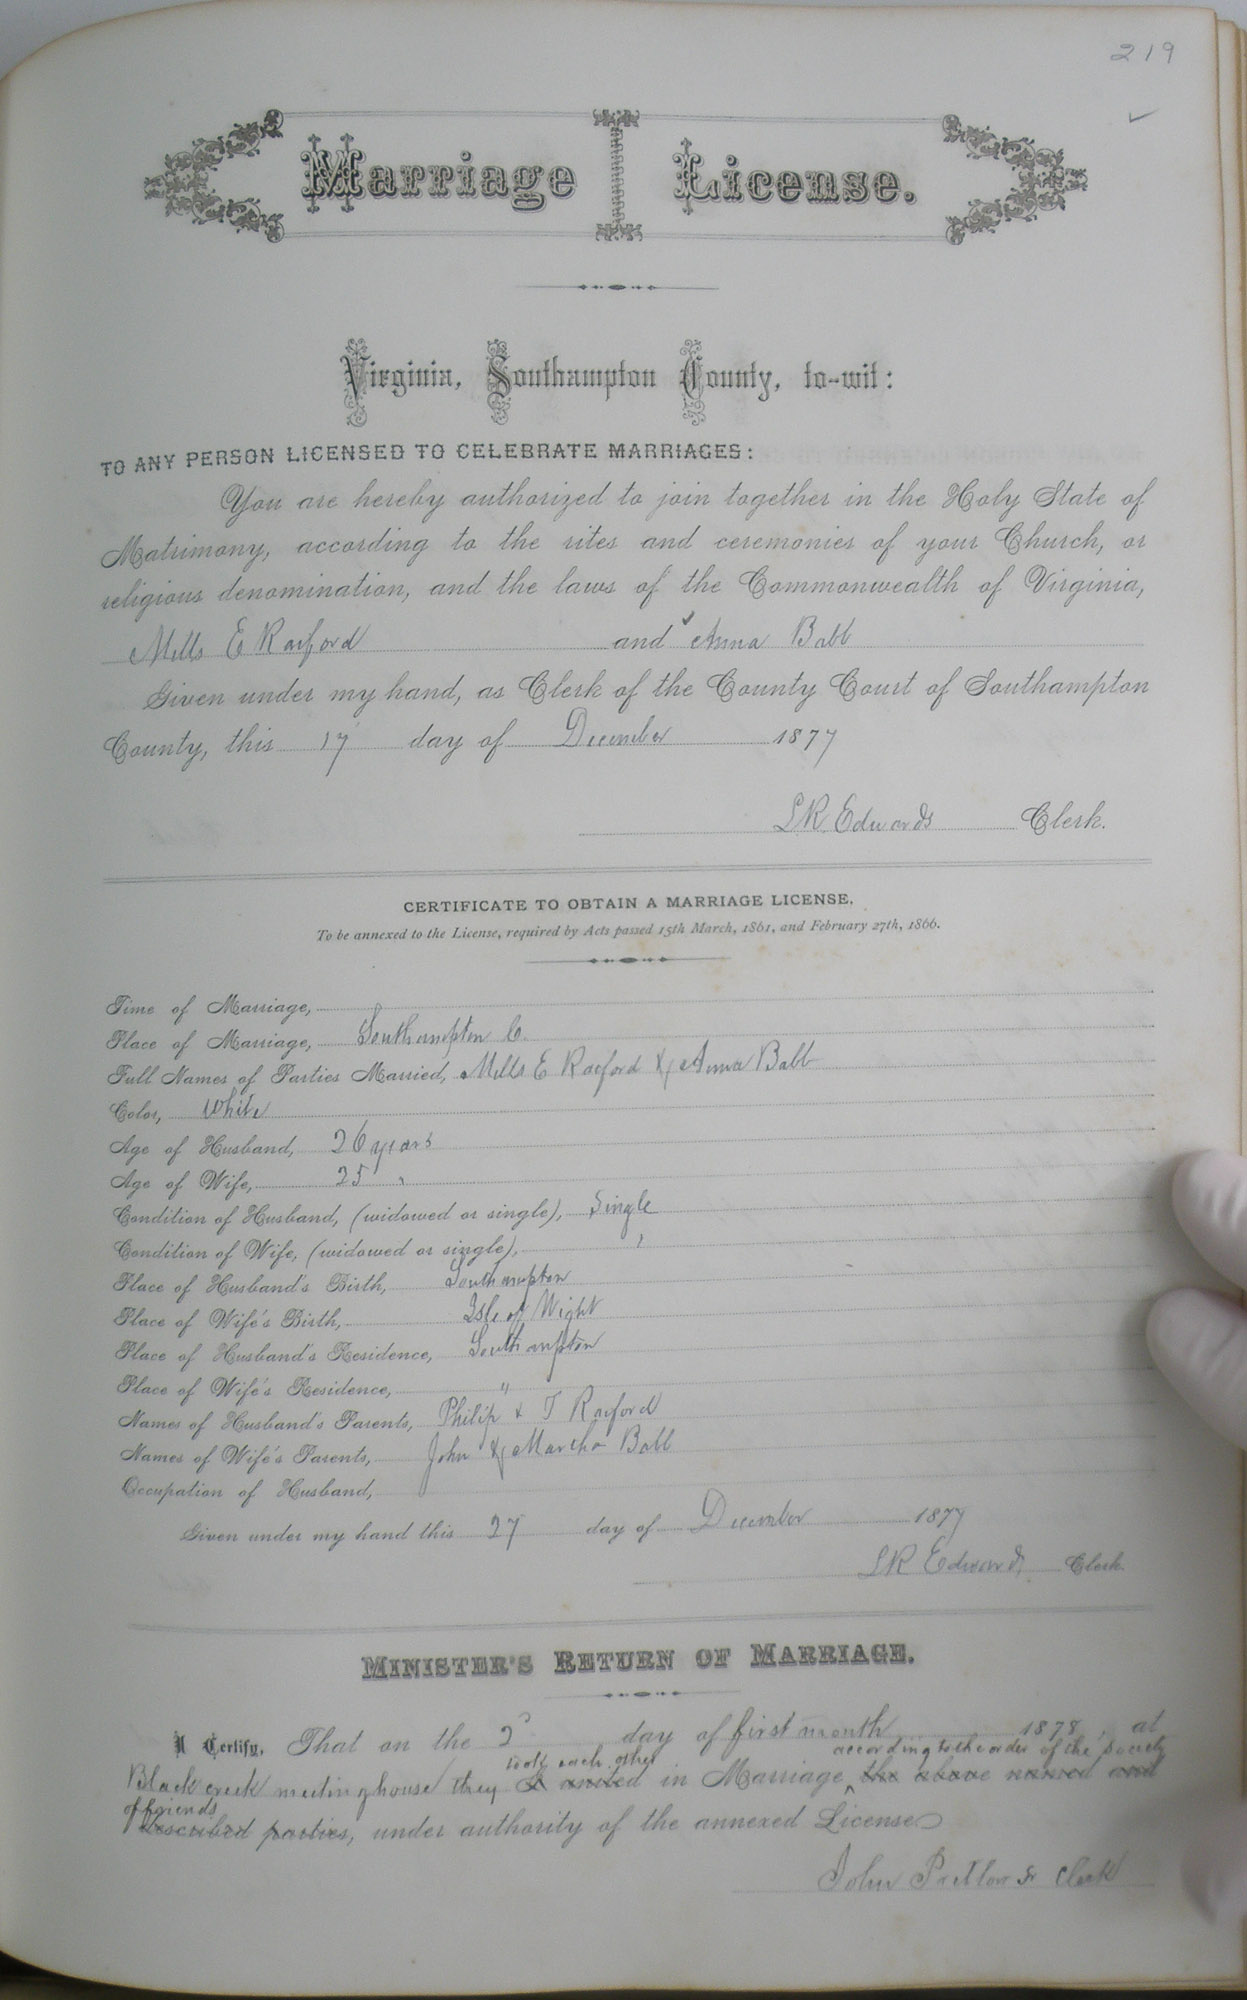 219
Marriage License.
Virginia, Southampton County, to-wit:
TO ANY PERSON LICENSED TO CELEBRATE MARRIAGES:
You are hereby authorized to join together in the Holy State of
Matrimony, according to the rites and ceremonies of your Church, or
religious denomination, and the laws of the Commonwealth of Virginia,
Mills E Raiford and Anna Babb
Given under my hand, as Clerk of the County Court of Southampton
County, this 17 day of December 1877
L R Edwards Clerk.
CERTIFICATE TO OBTAIN A MARRIAGE LICENSE.
To be annexed to the License, required by Acts passed 15th March, 1861, and February 27th, 1866.
Time of Marriage,
Place of Marriage, Southampton Co.
Full Names of Parties Married, Mills E Raiford & Anna Babb
Color, White
Age of Husband, 26 years
Age of Wife, 25 "
Condition of Husband, (widowed or single), Single
Condition of Wife, (widowed or single), "
Place of Husband's Birth, Southampton
Place of Wife's Birth, Isle of Wight
Place of Husband's Residence, Southampton
Place of Wife's Residence, "
Names of Husband's Parents, Philip & T Raiford
Names of Wife's Parents, John & Martha Babb
Occupation of Husband,
Given under my hand this 27 day of December 1877
L R Edwards Clerk.
MINISTER'S RETURN OF MARRIAGE.
I Certify, That on the 2 day of first month 1878, at
took each other according to the order of the Society
Black creek meeting house they I united in Marriage, the above named and
of friends
described parties, under authority of the annexed License
John Pretlow Clerk